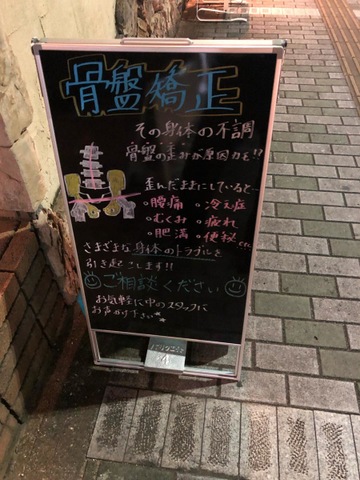 骨盤矯正
その身体の不調
骨盤の歪みが原因かも!?
歪んだままにしていると…
・腰痛 ・冷え症
・むくみ ・疲れ
・肥満 ・便秘 etc
さまざまな身体のトラブルを
引き起こします!!
ご相談ください
お気軽に中のスタッフに
お声がけ下さい